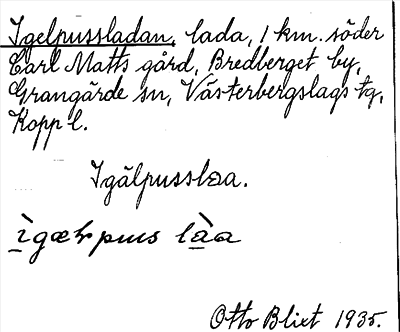 Igelpussladan, lada, 1 km. söder
Carl Matts gård, Bredberget by,
Grangärde sn, Västerbergslags tg,
Kopp l.
Igälpusslaa.
ìgæƚpuus làa
Otto Blixt 1935.